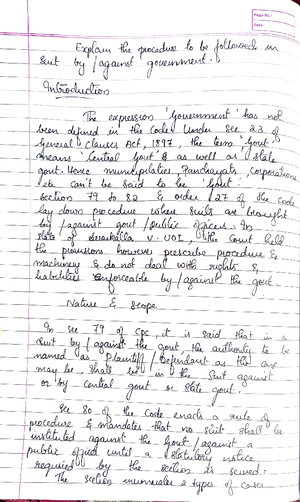 Page No.:
Date:
Explain the procedure to be followed in
suit by / against government.
Introduction
The expression 'Government' has not
been defined in the code. Under sec 23 of
General Clauses Act, 1897, the term 'Govt'
means 'Central Govt' & as well as 'state
govt. Hence municipalities, Panchayats, corporations
etc can't be said to be 'Govt'.
Section 79 to 82 & order 27 of the Code
lay down procedure where suits are brought
by / against govt / public officers. In
state of v. UOI, the Court held
the provisions however prescribe procedure &
machinery & do not deal with rights &
liabilities enforceable by / against the govt.
Nature & scope
In sec 79 of CPC, it is said that in a
suit by / against the govt, the authority to be
named as Plaintiff / Defendant as the case
may be, shall in the suit against
or by central govt or state govt.
Sec 80 of the Code enacts a rule of
procedure & mandates that no suit shall be
instituted against the Govt / against a
public officer until a statutory notice
required by the section is served.
The section enumerates 2 types of cases